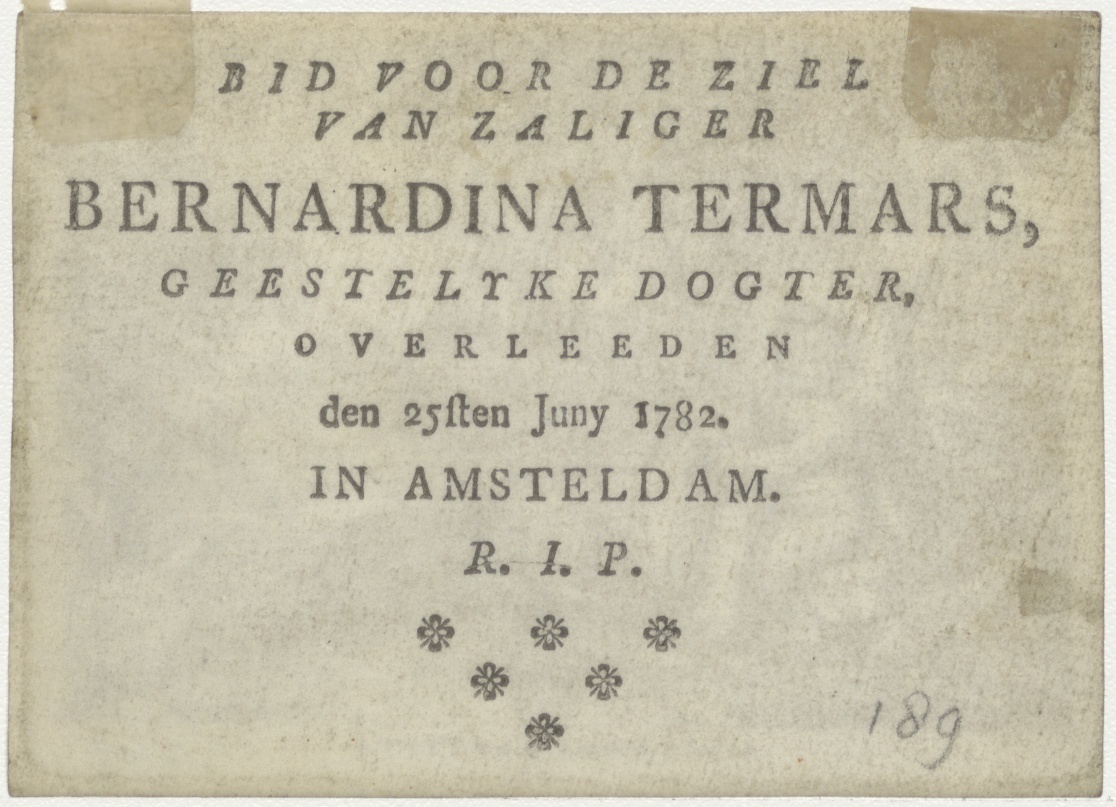 BID VOOR DE ZIEL
VAN ZALIGER
BERNARDINA TERMARS,
GEESTELYKE DOGTER,
OVERLEEDEN
den 25ſten Juny 1782.
IN AMSTELDAM.
R. I. P.
189